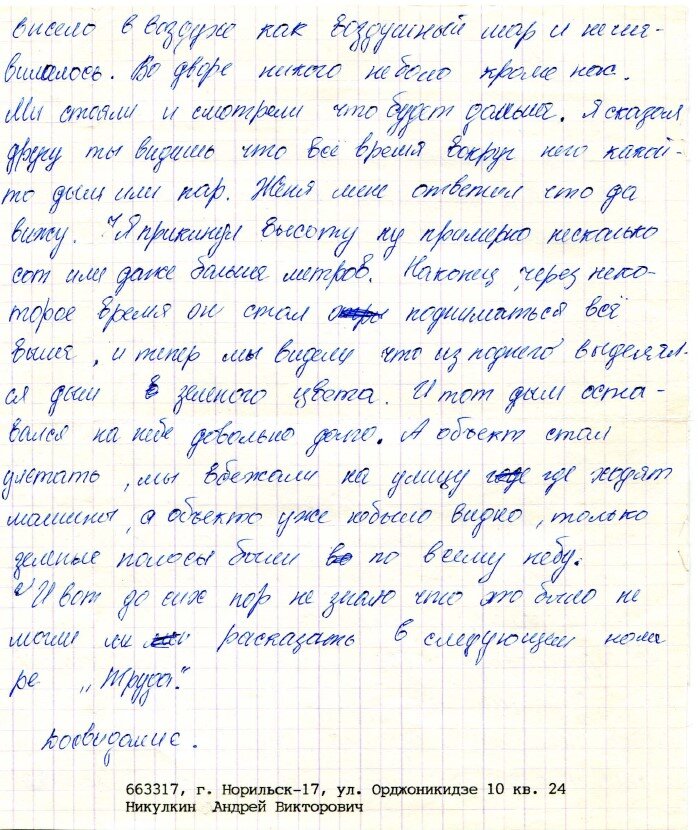 висело в воздухе как воздушный шар и не ше-
вилалось. Во дворе никого небыло кроме нас.
Ми стояли и смотрели что будет дальше. Я сказал
другу ты видишь что всё время вокруг него какой-
то дым или пар. Женя мне ответил что да
вижу. Я прикинул высоту ну примерно несколько
сот или даже больше метров. Наконец через неко-
торое время он стал подниматься всё
выше, и тепер мы видели что из поднего выделял-
ся дым зеленого цвета. И тот дым оста-
вался на небе довольно долго. А объект стал
улетать, мы вбежали на улицу где ходят
машины, а объекто уже небыло видно, только
зеленые полосы были по всему небу.
И вот до сих пор не знаю что это было не
могли ли расказать в следующем номе
ре „Труда".
Досвидание.
663317, г. Норильск-17, ул. Орджоникидзе 10 кв. 24
Никулкин Андрей Викторович